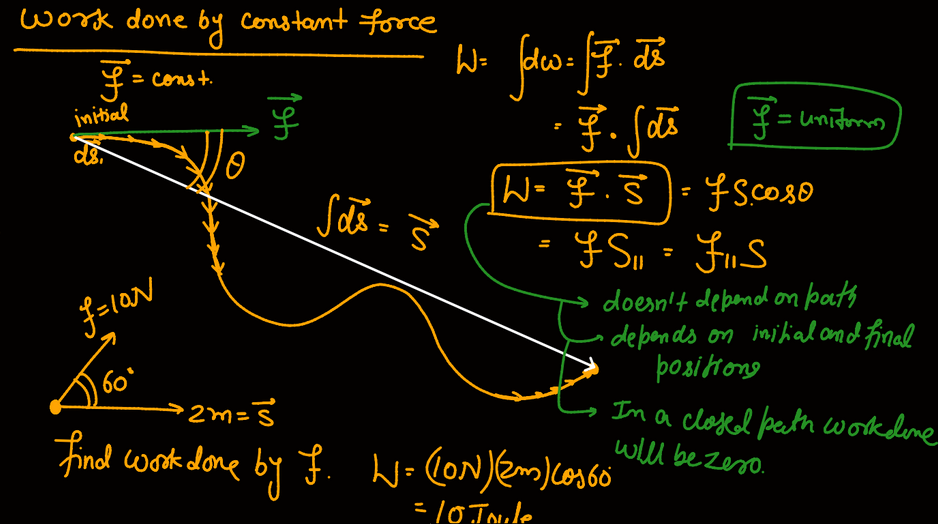 work done by constant force
f⃗ = const.
initial
f⃗
ds₁
θ
∫ds⃗ = s⃗
W = ∫dw = ∫f⃗ . ds⃗
= f⃗ . ∫ds⃗
f⃗ = uniform
W = f⃗ . s⃗ = f S.cosθ
= f S₁₁ = f₁₁ S
doesn't depend on path
depends on initial and final
positions
In a closed path workdone
will be zero.
f=10N
60°
2m = s⃗
find work done by f.
W = (10N)(2m)cos60°
= 10 Joule